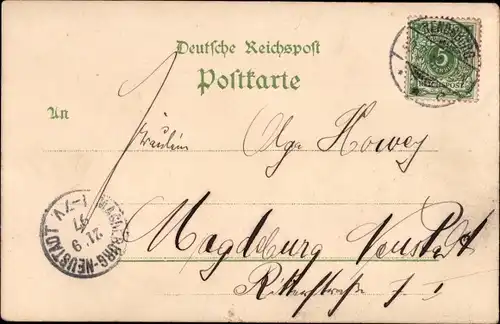 Deutsche Reichspost
Postkarte
An
MAGDEBURG
5
Fräulein Olga Howey
Magdeburg Neustadt
Ritterstraße 1 I
MAGDEBURG-NEUSTADT
21 9
97
1-7V.